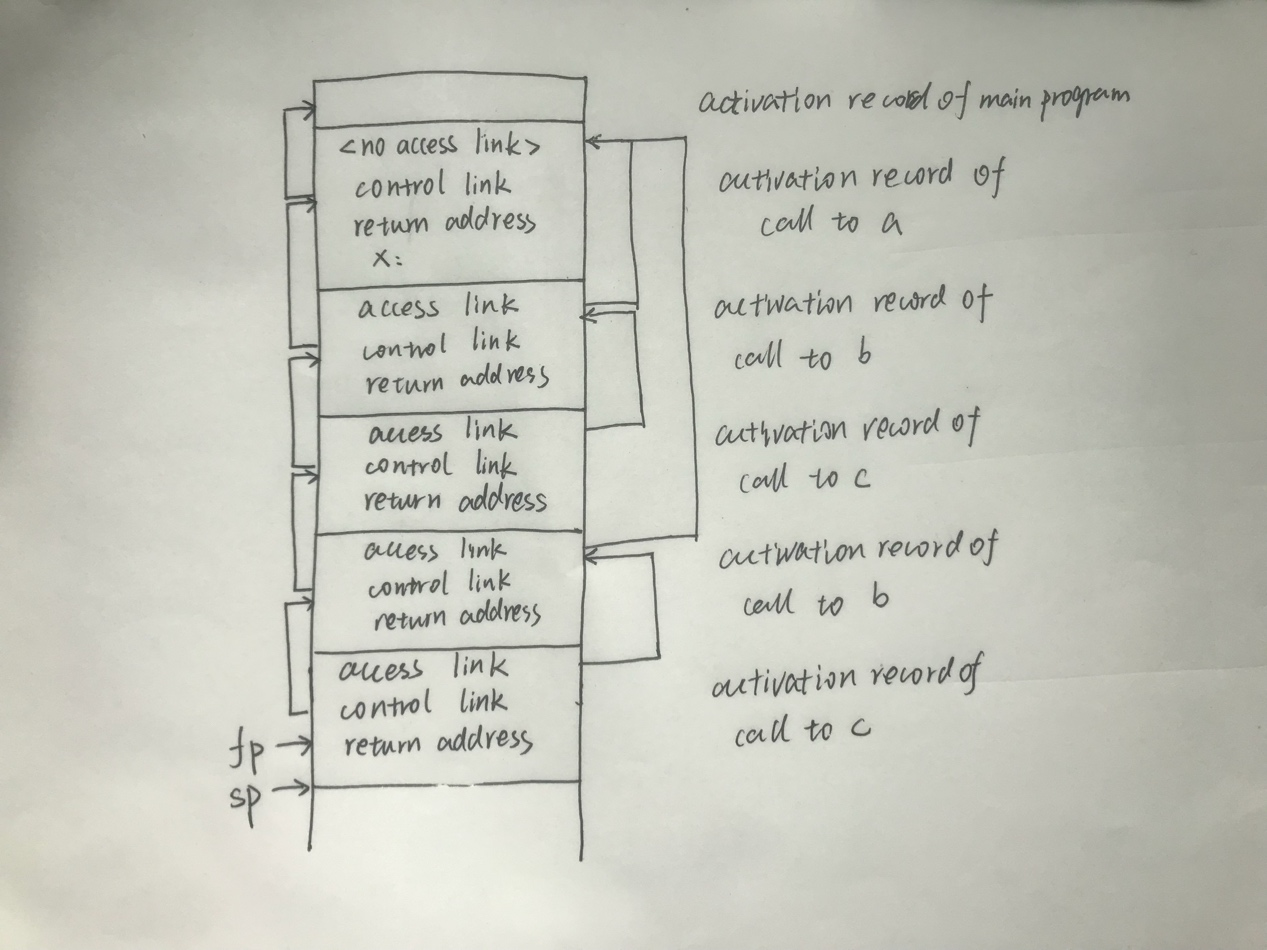 activation record of main program
<no access link>
control link
return address
x:
activation record of
call to a
access link
control link
return address
activation record of
call to b
access link
control link
return address
activation record of
call to c
access link
control link
return address
activation record of
call to b
access link
control link
return address
activation record of
call to c
fp
sp